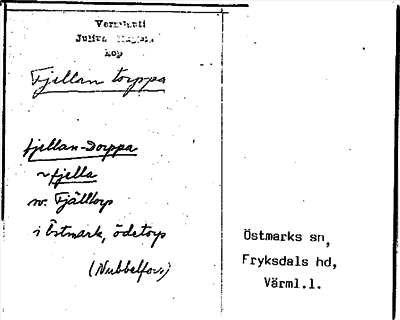 Vermlanti
Julius
kop
Fjellan torppa
fjellan-Dorppa
~ fjella
sv. Fjälltorp
i Östmark, ödetorp
Östmarks sn,
Fryksdals hd,
Värml.l.